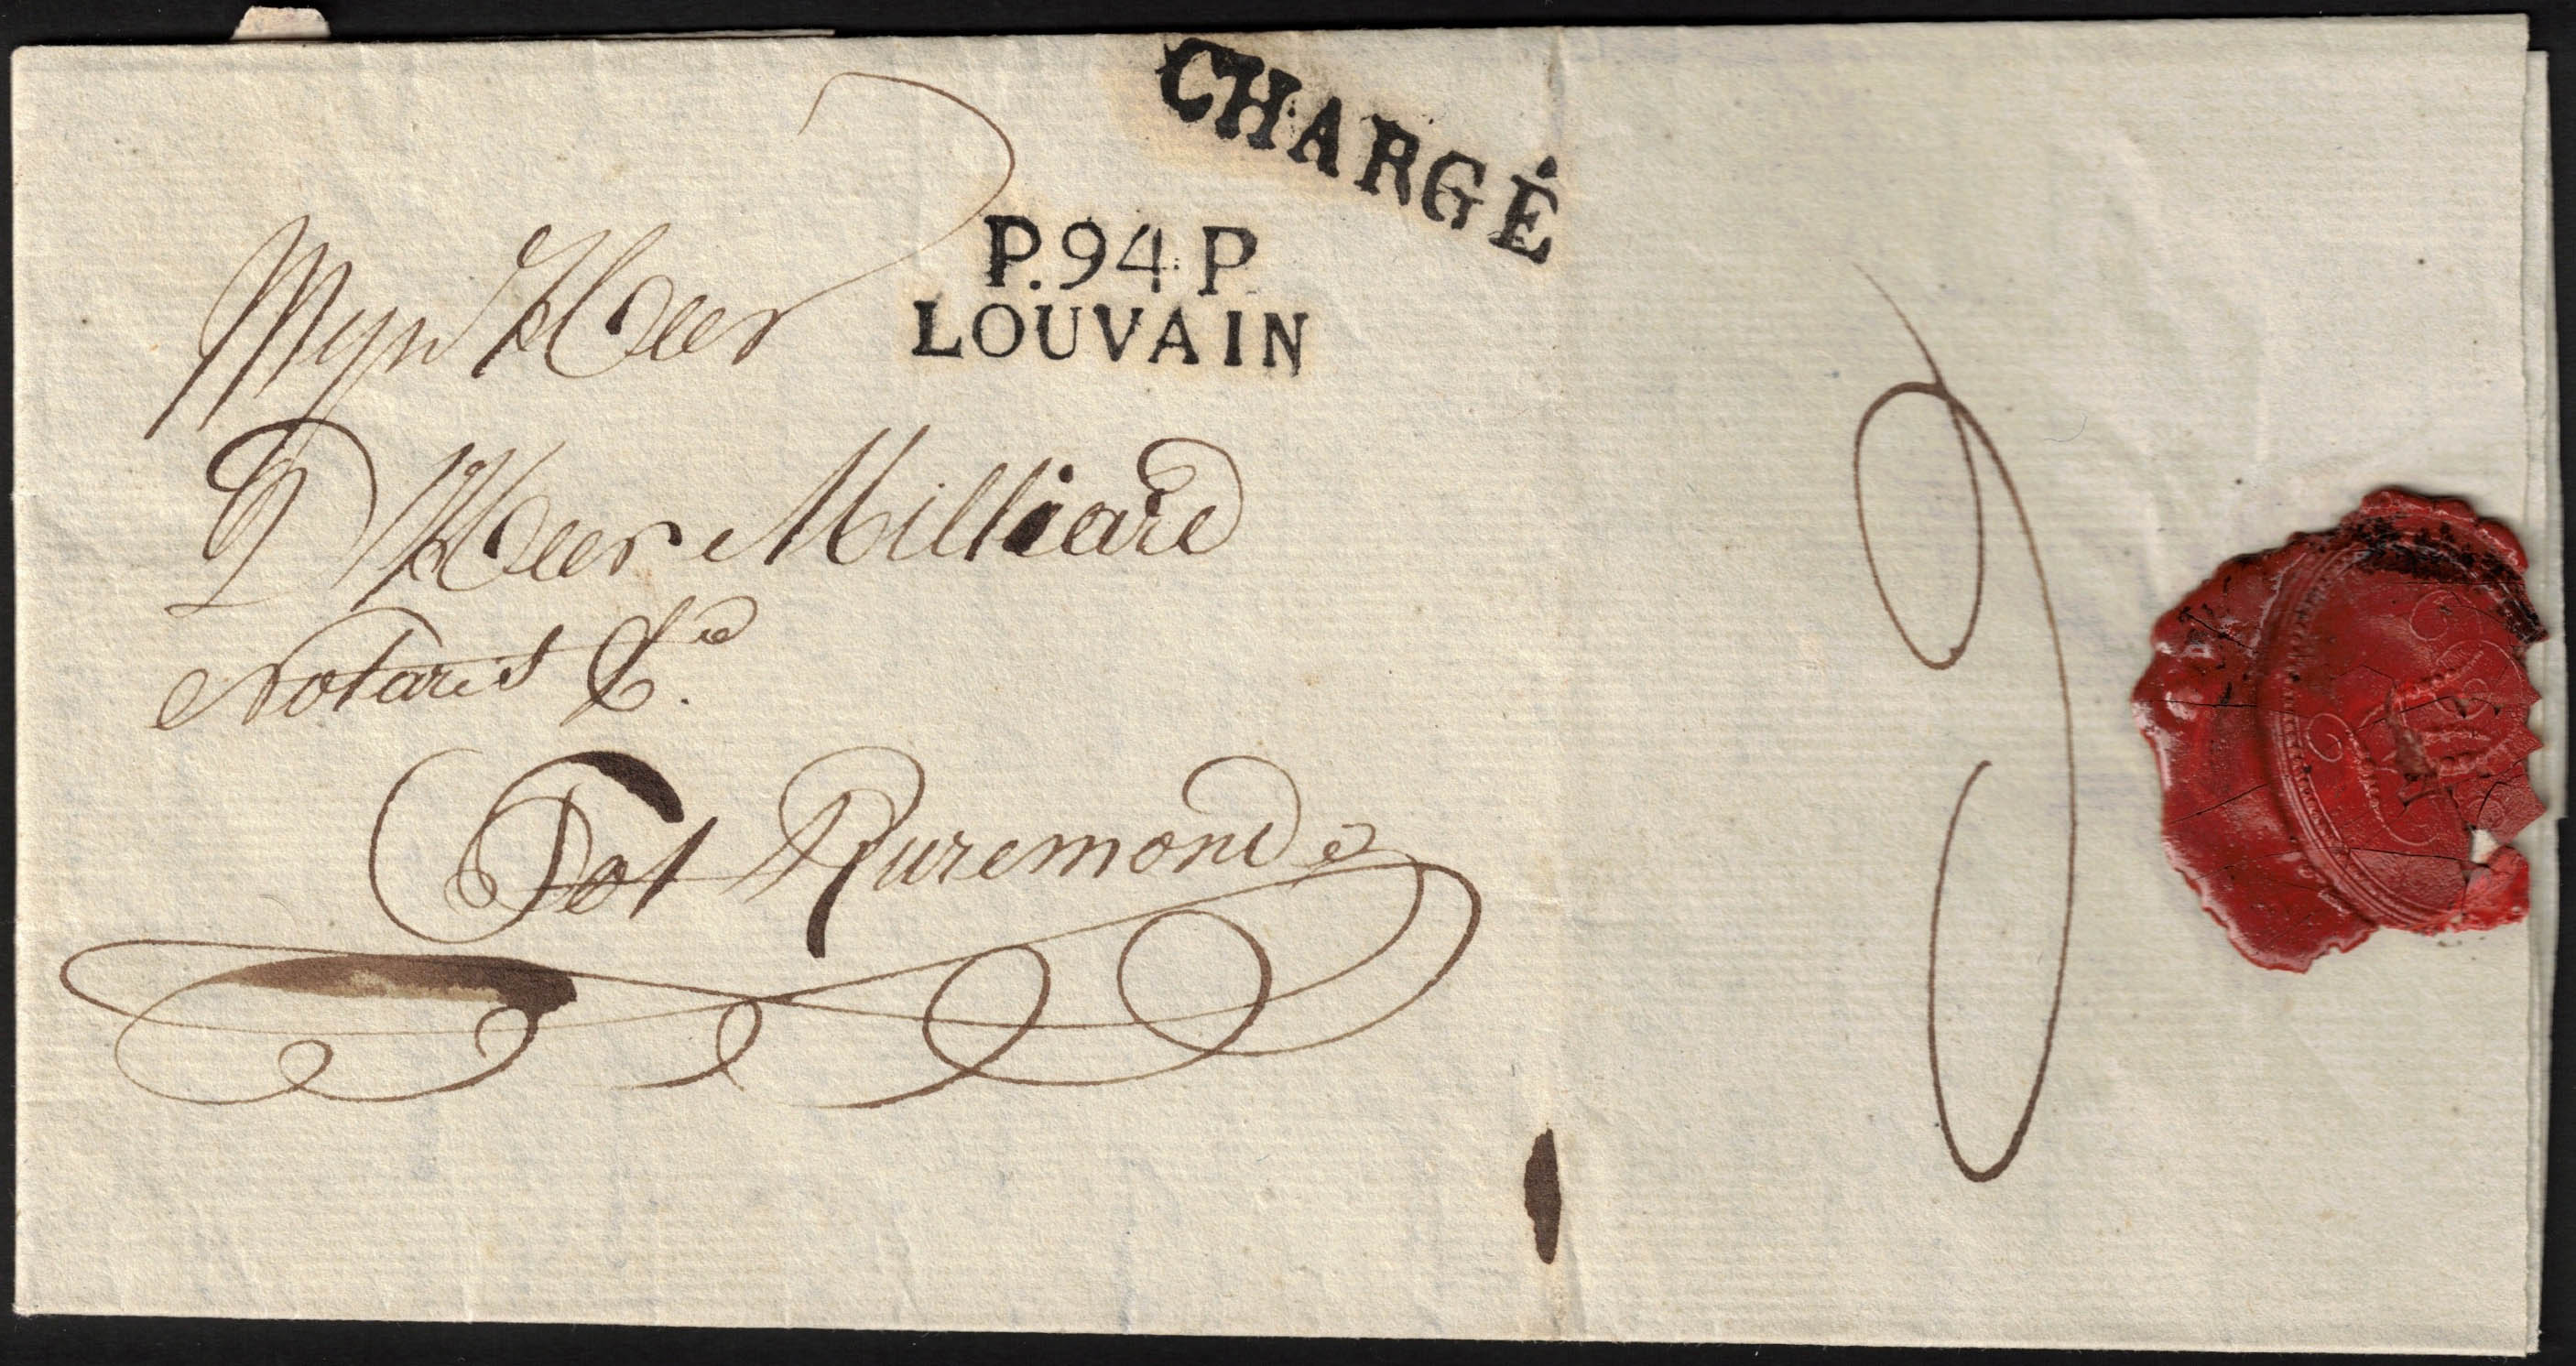 CHARGÉ
P.94.P
LOUVAIN
Mijn Heer
D Heer Milliard
Notaris &ca.
Tot Ruremonde